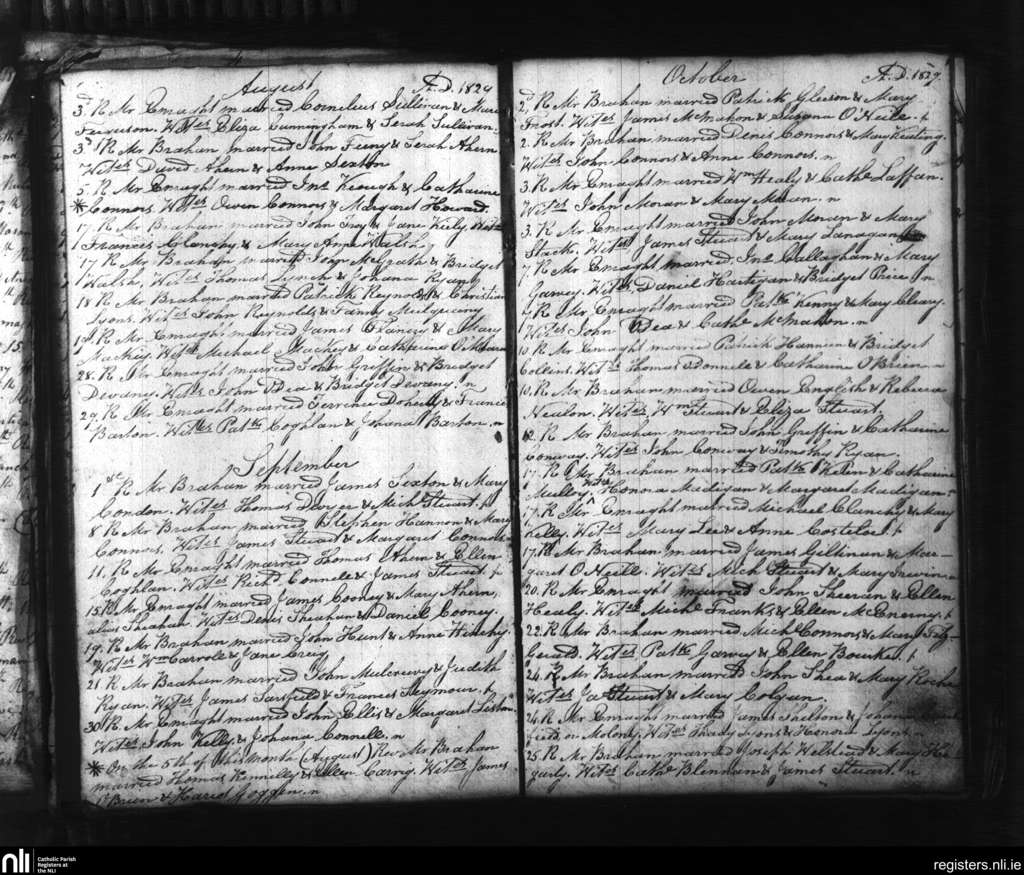 August A.D. 1829
3d R Mr Enraght married Cornelius Sullivan & Mary
Ferguson. Wit.es Eliza Cunningham & Sarah Sullivan.
3d R Mr Brahan married John Feeny & Sarah Ahern
Wit.es David Ahern & Anne Sexton
5. R Mr Enraght married Jno Keough & Catharine
* Connors. Wit.es Owen Connors & Margaret Howard.
17. R Mr Brahan married John Troy & Jane Kiely Wit.es
Francis Clanchy & Mary Anne
17 R Mr Brahan married John McGrath & Bridget
Walsh, Wit.es Thomas Lynch & Johana Ryan
18 R Mr Brahan married Patrick Reynolds & Christian
Lyons. Wit.es John Reynolds & Fanny Mulqueany
19. R Mr Enraght married James Clancy & Mary
Mackey. Wit.es Michael Mackey & Catharine O'Meara
28. R Mr Enraght married John Griffin & Bridget
Devany. Wit.es John ODea & Bridget Devany. n
29. R Mr Enraght married Terrence Doherty & Francis
Barton. Wit.es Patk Coghlan & Johana Barton. n
September
1st R Mr Brahan married James Sexton & Mary
Condon. Wit.es Thomas Dwyer & Michl Stewart. t
8 R Mr Brahan married Stephen Hannon & Mary
Connors. Wit.es James Stewart & Margaret Connors
11. R Mr Enraght married Thomas Ahern & Ellen
Coghlan. Wit.es Richd Connele & James Stewart. t
15. R Mr Enraght married James Cooney & Mary Ahern,
alias Sheahan. Wit.es Denis Sheahan & Daniel Cooney.
19. R Mr Brahan married John Hunt & Anne Hinchy.
Wit.es Wm Carroll & Jane Creig
21 R Mr Brahan married John Mulcrewy & Judith
Ryan. Wit.es James Sarsfield & Frances Seymour. t
30. R Mr Enraght married John Ellis & Margaret Liston.
Wit.es John Kelly & Johana Connelle. n
* On the 5th of this month (August) Rev Mr Brahan
married Thomas Kennelly & Ellen Carrig. Wit.es James
O'Brien & Hariot Goggen. n
October A.D. 1829.
2d R Mr Brahan married Patrick Gleeson & Mary
Frost. Wit.es James McMahon & Susana O'Neill. t
2. R Mr Brahan married Denis Connors & Mary Keating.
Wit.es John Connors & Anne Connors. n
3. R Mr Enraght married Wm Healy & Cathe Laffan.
Wit.es John Moran & Mary Moran. n
3. R Mr Enraght married John Moran & Mary
Stack. Wit.es James Stewart & Mary Lanagan
7 R Mr Enraght married Jno Callaghan & Mary
Garvey. Wit.es Daniel Hartigan & Bridget Price. n
9. R Mr Enraght married Patk Kenny & Mary Cleary.
Wit.es John ODea & Cathe McMahon. n
10. R Mr Enraght married Patrick Hannin & Bridget
Collins. Wit.es Thomas ODonnele & Catharine O'Brien. n
10. R Mr Brahan married Owen English & Rebecca
Nealon. Wit.es Wm Stewart & Eliza Stewart.
12. R Mr Brahan married John Griffin & Catharine
Conway. Wit.es John Conway & Timothy Ryan.
17. R Mr Brahan married Patk & Catharine
Mulloy. Wit.es Honora Madigan & Margaret Madigan. t
17. R Mr Enraght married Michael Clanchy & Mary
Kelly. Wit.es Mary Lee & Anne Costeloe. t
17. R Mr Brahan married James Giltinan & Mar-
garet O'Neill. Wit.es Mich Stewart & Mary Irwin. n
20. R Mr Enraght married John Sheeran & Ellen
Healy. Wit.es Michl Franks & Ellen McEnerny. t
22. R Mr Brahan married Michl Connors & Mary Fitz-
Gerald. Wit.es Patk Garvey & Ellen Bourke. t
24. R Mr Brahan married John Shea & Mary Roche
Wit.es Jas Stewart & Mary Colgan
24. R Mr Enraght married James Shelton & Johana
or Molony. Wit.es Thady Lyons & Honora Lyons. n
25. R Mr Brahan married Joseph & Mary He-
garty. Wit.es Cathe Blennan & James Stewart. n
nli
Catholic Parish
Registers at
the NLI
registers.nli.ie